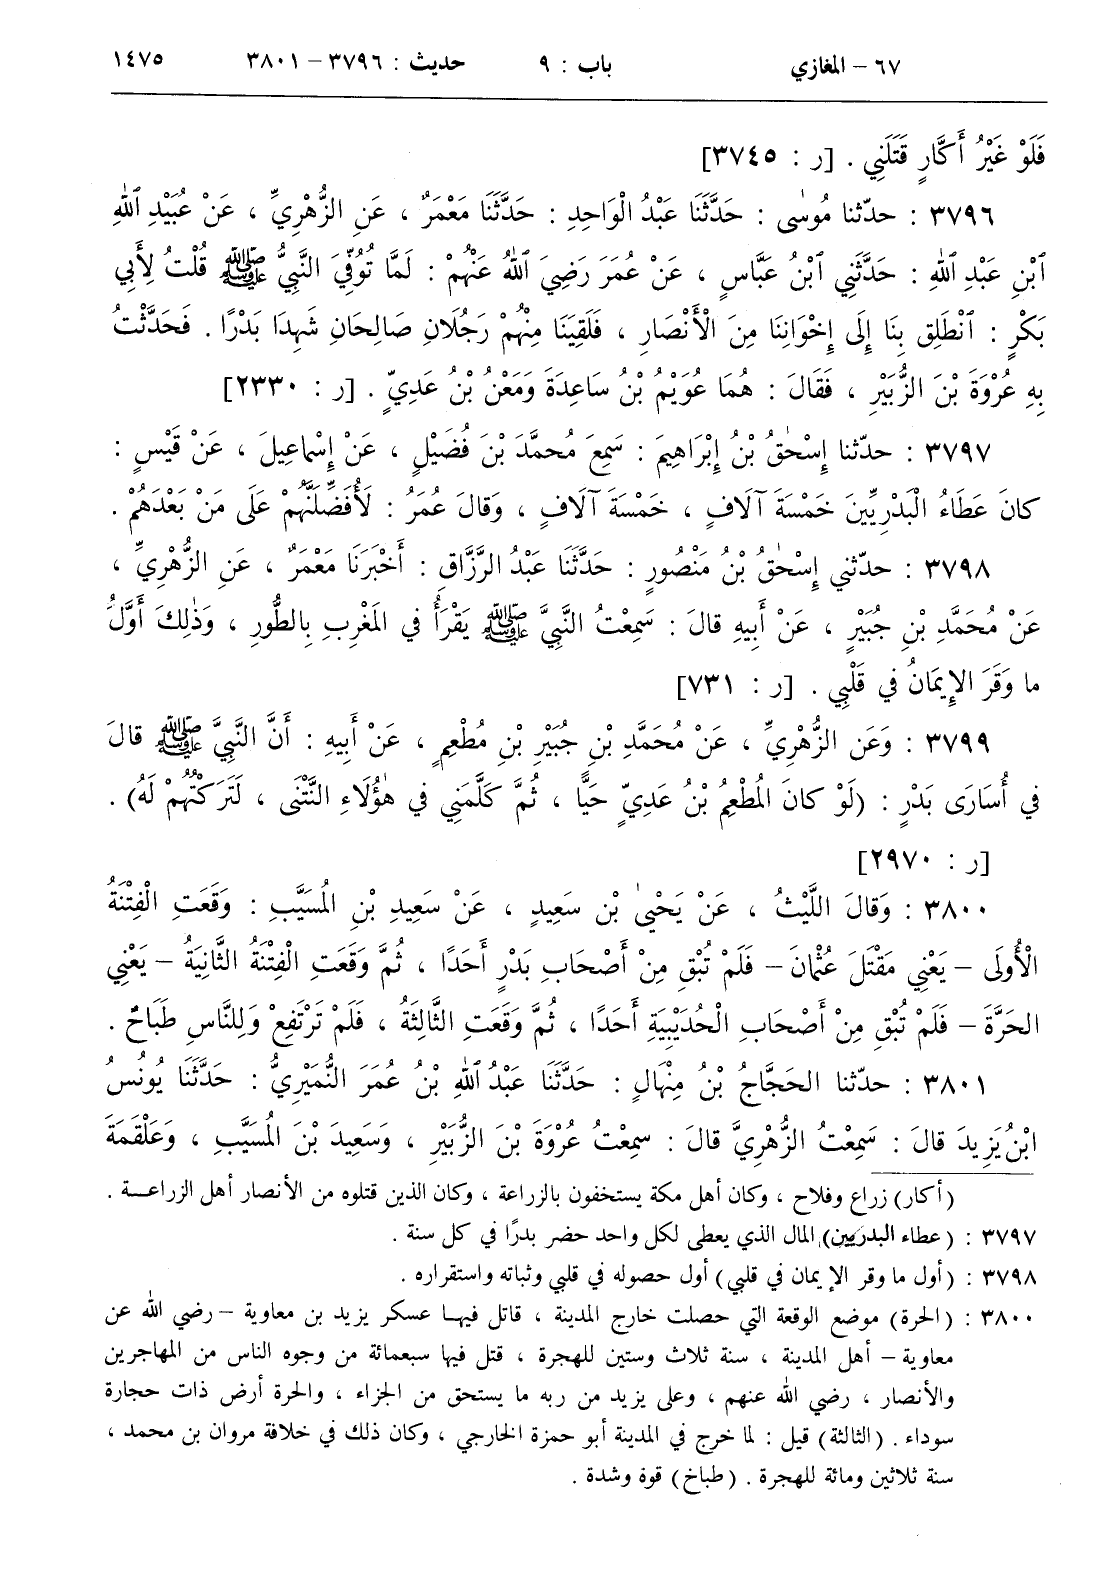 ٦٧ – المغازي باب : ٩ حديث : ٣٧٩٦ – ٣٨٠١ ١٤٧٥
فَلَوْ غَيْرُ أَكَّارٍ قَتَلَنِي . [ر : ٣٧٤٥]
٣٧٩٦ : حدّثنا مُوسٰى : حَدَّثَنَا عَبْدُ الْوَاحِدِ : حَدَّثَنَا مَعْمَرٌ ، عَنِ الزُّهْرِيِّ ، عَنْ عُبَيْدِ ٱللهِ
ٱبْنِ عَبْدِ ٱللهِ : حَدَّثَنِي ٱبْنُ عَبَّاسٍ ، عَنْ عُمَرَ رَضِيَ ٱللهُ عَنْهُمْ : لَمَّا تُوُفِّيَ النَّبِيُّ ﷺ قُلْتُ لِأَبِي
بَكْرٍ : ٱنْطَلِقْ بِنَا إِلَى إِخْوَانِنَا مِنَ الْأَنْصَارِ ، فَلَقِيَنَا مِنْهُمْ رَجُلَانِ صَالِحَانِ شَهِدَا بَدْرًا . فَحَدَّثْتُ
بِهِ عُرْوَةَ بْنَ الزُّبَيْرِ ، فَقَالَ : هُمَا عُوَيْمُ بْنُ سَاعِدَةَ وَمَعْنُ بْنُ عَدِيٍّ . [ر : ٢٣٣٠]
٣٧٩٧ : حدّثنا إِسْحٰقُ بْنُ إِبْرَاهِيمَ : سَمِعَ مُحمَّدَ بْنَ فُضَيْلٍ ، عَنْ إِسْماعِيلَ ، عَنْ قَيْسٍ :
كانَ عَطَاءُ الْبَدْرِيِّينَ خَمْسَةَ آلَافٍ ، خَمْسَةَ آلَافٍ ، وَقالَ عُمَرُ : لَأُفَضِّلَنَّهُمْ عَلَى مَنْ بَعْدَهُمْ .
٣٧٩٨ : حدّثني إِسْحٰقُ بْنُ مَنْصُورٍ : حَدَّثَنَا عَبْدُ الرَّزَّاقِ : أَخْبَرَنَا مَعْمَرٌ ، عَنِ الزُّهْرِيِّ ،
عَنْ مُحَمَّدِ بْنِ جُبَيْرٍ ، عَنْ أَبِيهِ قالَ : سَمِعْتُ النَّبِيَّ ﷺ يَقْرَأُ في المَغْرِبِ بِالطُّورِ ، وَذٰلِكَ أَوَّلُ
ما وَقَرَ الإِيمَانُ في قَلْبِي . [ر : ٧٣١]
٣٧٩٩ : وَعَنِ الزُّهْرِيِّ ، عَنْ مُحَمَّدِ بْنِ جُبَيْرِ بْنِ مُطْعِمٍ ، عَنْ أَبِيهِ : أَنَّ النَّبِيَّ ﷺ قالَ
في أُسَارَى بَدْرٍ : (لَوْ كانَ المُطْعِمُ بْنُ عَدِيٍّ حَيًّا ، ثُمَّ كَلَّمَنِي في هٰؤُلَاءِ النَّتْنَى ، لَتَرَكْتُهُمْ لَهُ) .
[ر : ٢٩٧٠]
٣٨٠٠ : وَقالَ اللَّيْثُ ، عَنْ يَحْيٰى بْنِ سَعِيدٍ ، عَنْ سَعِيدِ بْنِ المُسَيَّبِ : وَقَعَتِ الْفِتْنَةُ
الْأُولَى – يَعْنِي مَقْتَلَ عُثْمَانَ – فَلَمْ تُبْقِ مِنْ أَصْحَابِ بَدْرٍ أَحَدًا ، ثُمَّ وَقَعَتِ الْفِتْنَةُ الثَّانِيَةُ – يَعْنِي
الحَرَّةَ – فَلَمْ تُبْقِ مِنْ أَصْحَابِ الْحُدَيْبِيَةِ أَحَدًا ، ثُمَّ وَقَعَتِ الثَّالِثَةُ ، فَلَمْ تَرْتَفِعْ وَلِلنَّاسِ طَبَاخٌ .
٣٨٠١ : حدّثنا الحَجَّاجُ بْنُ مِنْهَالٍ : حَدَّثَنَا عَبْدُ ٱللهِ بْنُ عُمَرَ النُّمَيْرِيُّ : حَدَّثَنَا يُونُسُ
ابْنُ يَزِيدَ قالَ : سَمِعْتُ الزُّهْرِيَّ قالَ : سمِعْتُ عُرْوَةَ بْنَ الزُّبَيْرِ ، وَسَعِيدَ بْنَ المُسَيَّبِ ، وَعَلْقَمَةَ
(أكار) زراع وفلاح ، وكان أهل مكة يستخفون بالزراعة ، وكان الذين قتلوه من الأنصار أهل الزراعة .
٣٧٩٧ : (عطاء البدريين) المال الذي يعطى لكل واحد حضر بدرًا في كل سنة .
٣٧٩٨ : (أول ما وقر الإيمان في قلبي) أول حصوله في قلبي وثباته واستقراره .
٣٨٠٠ : (الحرة) موضع الوقعة التي حصلت خارج المدينة ، قاتل فيها عسكر يزيد بن معاوية – رضي الله عن
معاوية – أهل المدينة ، سنة ثلاث وستين للهجرة ، قتل فيها سبعمائة من وجوه الناس من المهاجرين
والأنصار ، رضي الله عنهم ، وعلى يزيد من ربه ما يستحق من الجزاء ، والحرة أرض ذات حجارة
سوداء . (الثالثة) قيل : لما خرج في المدينة أبو حمزة الخارجي ، وكان ذلك في خلافة مروان بن محمد ،
سنة ثلاثين ومائة للهجرة . (طباخ) قوة وشدة .